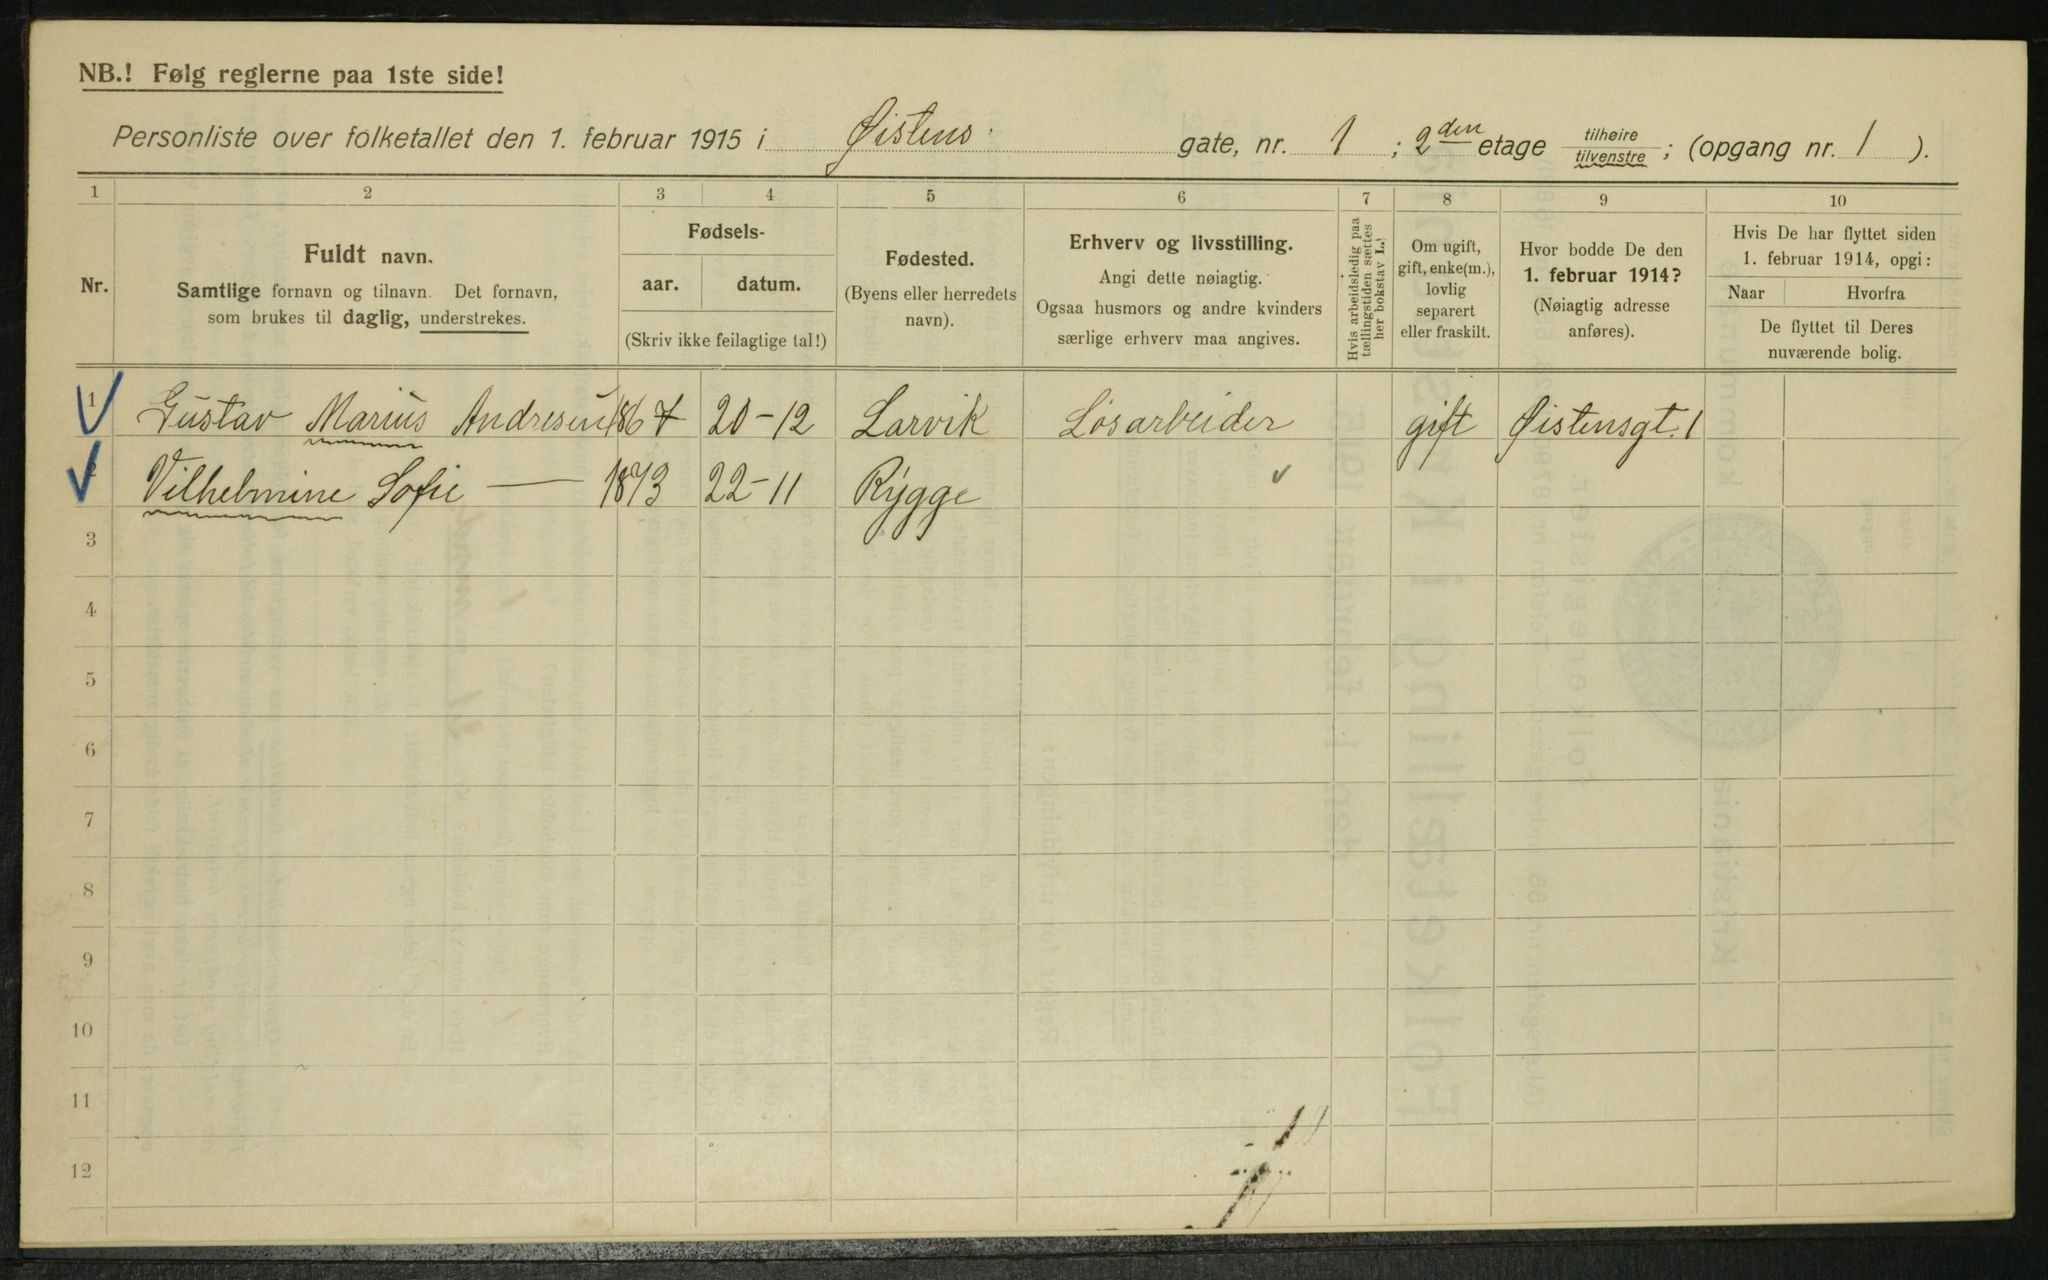 NB.! Følg reglerne paa 1ste side!
Personliste over folketallet den 1. februar 1915 i Øistens gate, nr. 1 ; 2den etage tilhøire tilvenstre ; (opgang nr. 1 ).
1 2 3 4 5 6 7 8 9 10
Nr.
Fuldt navn.
Samtlige fornavn og tilnavn. Det fornavn,
som brukes til daglig, understrekes.
Fødsels-
aar. datum.
(Skriv ikke feilagtige tal!)
Fødested.
(Byens eller herredets
navn).
Erhverv og livsstilling.
Angi dette nøiagtig.
Ogsaa husmors og andre kvinders
særlige erhverv maa angives.
Hvis arbeidsledig paa
tællingstiden sættes
her bokstav L.
Om ugift,
gift, enke(m.),
lovlig
separert
eller fraskilt.
Hvor bodde De den
1. februar 1914?
(Nøiagtig adresse
anføres).
Hvis De har flyttet siden
1. februar 1914, opgi:
Naar Hvorfra
De flyttet til Deres
nuværende bolig.
1 Gustav Marius Andresen 1867 20-12 Larvik Løsarbeider gift Øistensgt. 1
2 Vilhelmine Sofie — 1873 22-11 Rygge
3
4
5
6
7
8
9
10
11
12